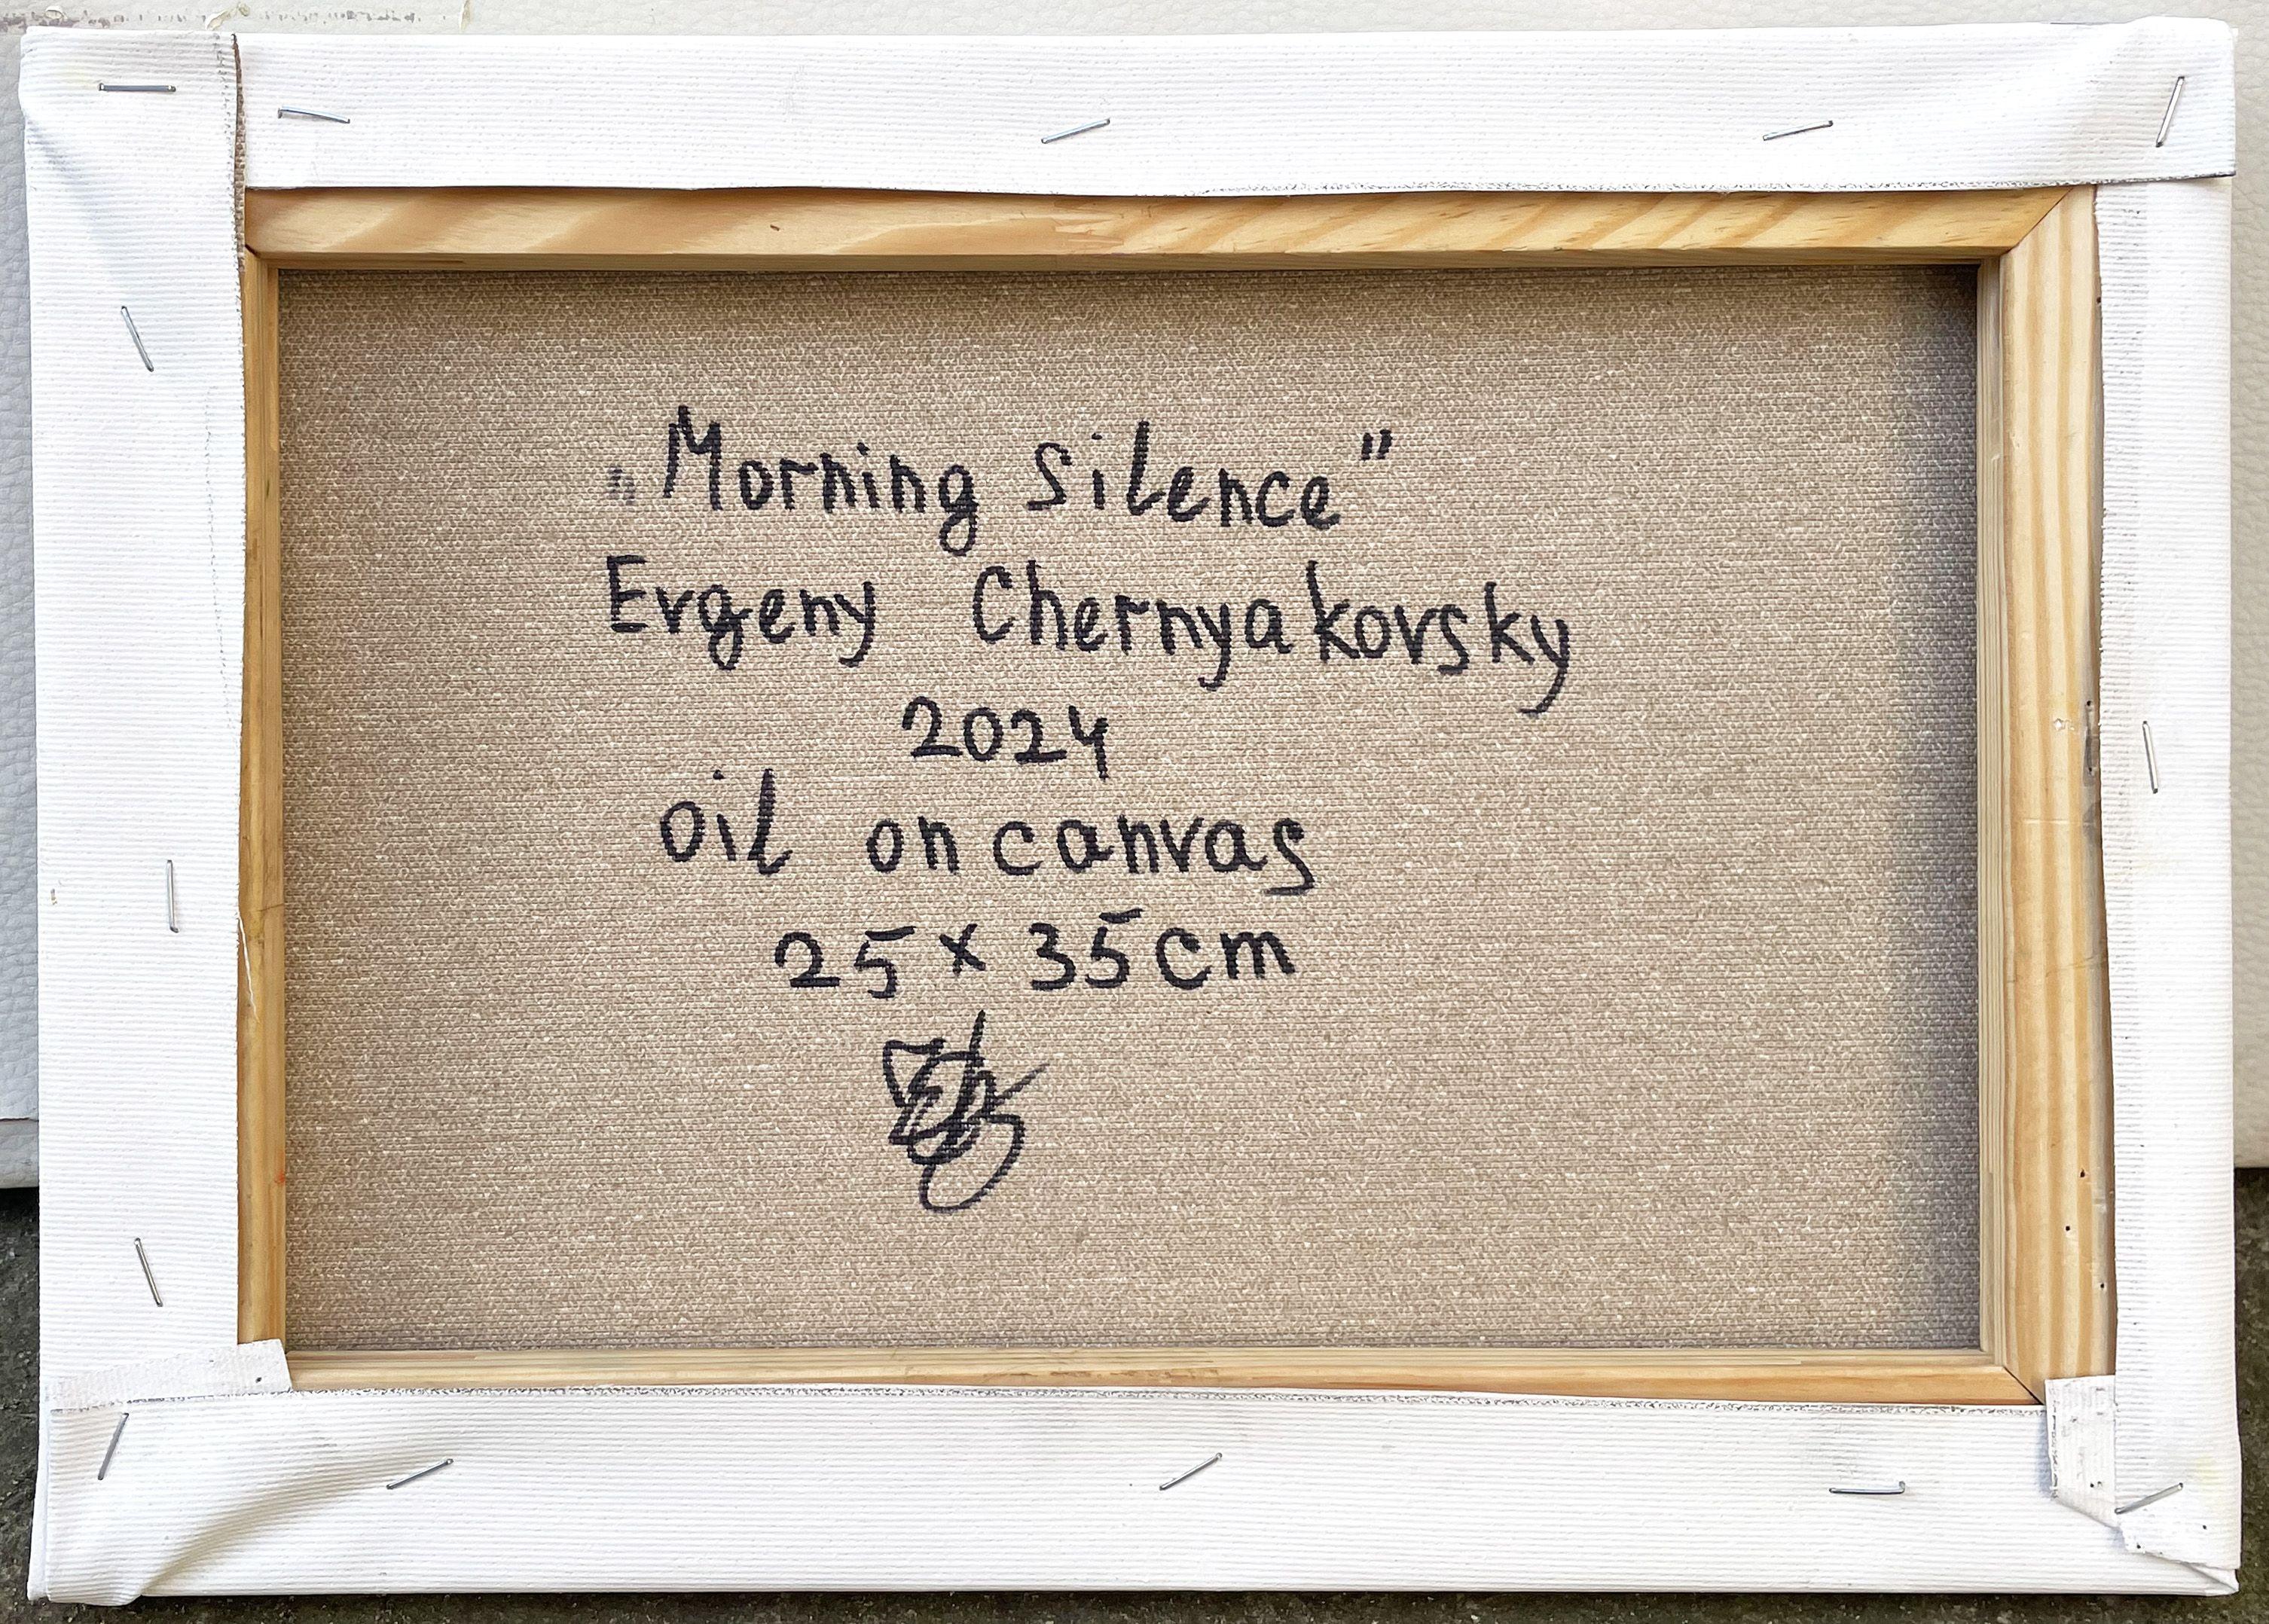 „Morning Silence"
Evgeny Chernyakovsky
2024
oil on canvas
25 x 35 cm